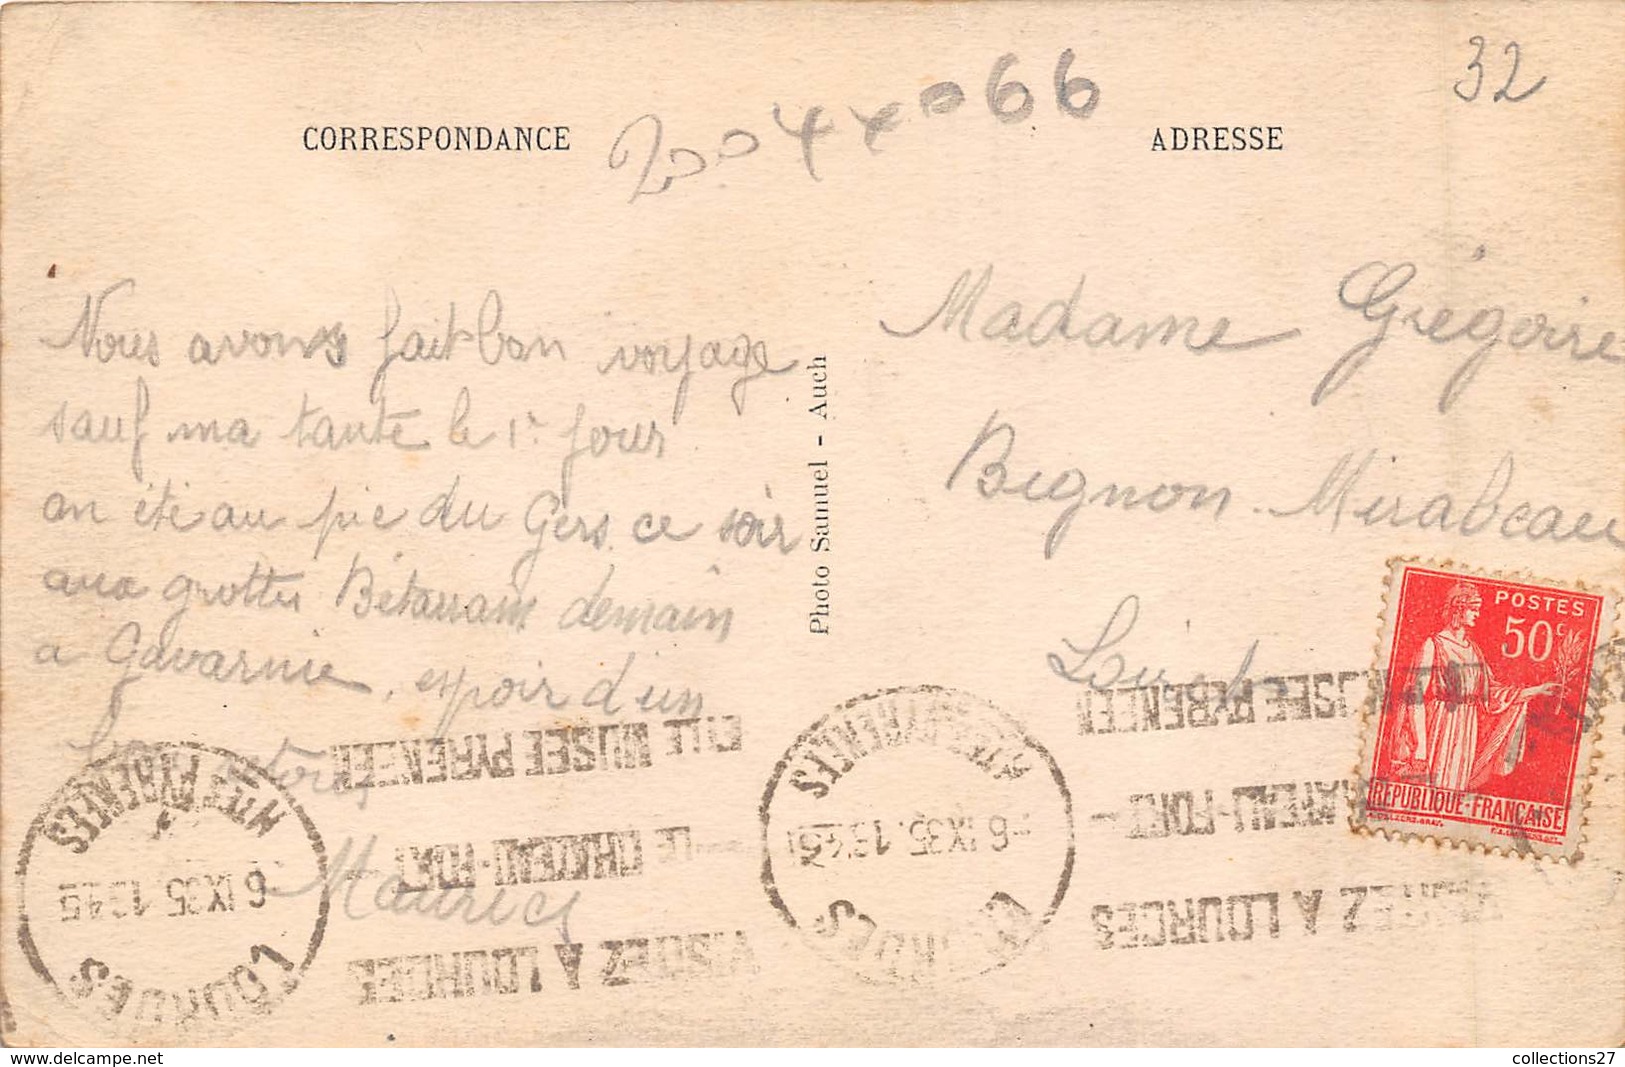 32
CORRESPONDANCE
ADRESSE
Nous avons fait bon voyage
sauf ma tante le 1r jour
on été au pic du Gers ce soir
aux grottes Bétarram demain
a Gavarnie, espoir d'un
Maurice
Photo Samuel - Auch
Madame Grégoire
Bignon-Mirabeau
Loiret
POSTES
50c
REPUBLIQUE·FRANÇAISE
LOURDES
6 IX35. 1345
HTES PYRENEES
VISITEZ A LOURDES
LE CHATEAU-FORT
ET LE MUSEE PYRENEEN
LOURDES
6 IX35. 1345
HTES PYRENEES
VISITEZ A LOURDES
CHATEAU-FORT
MUSEE PYRENEEN
collections27